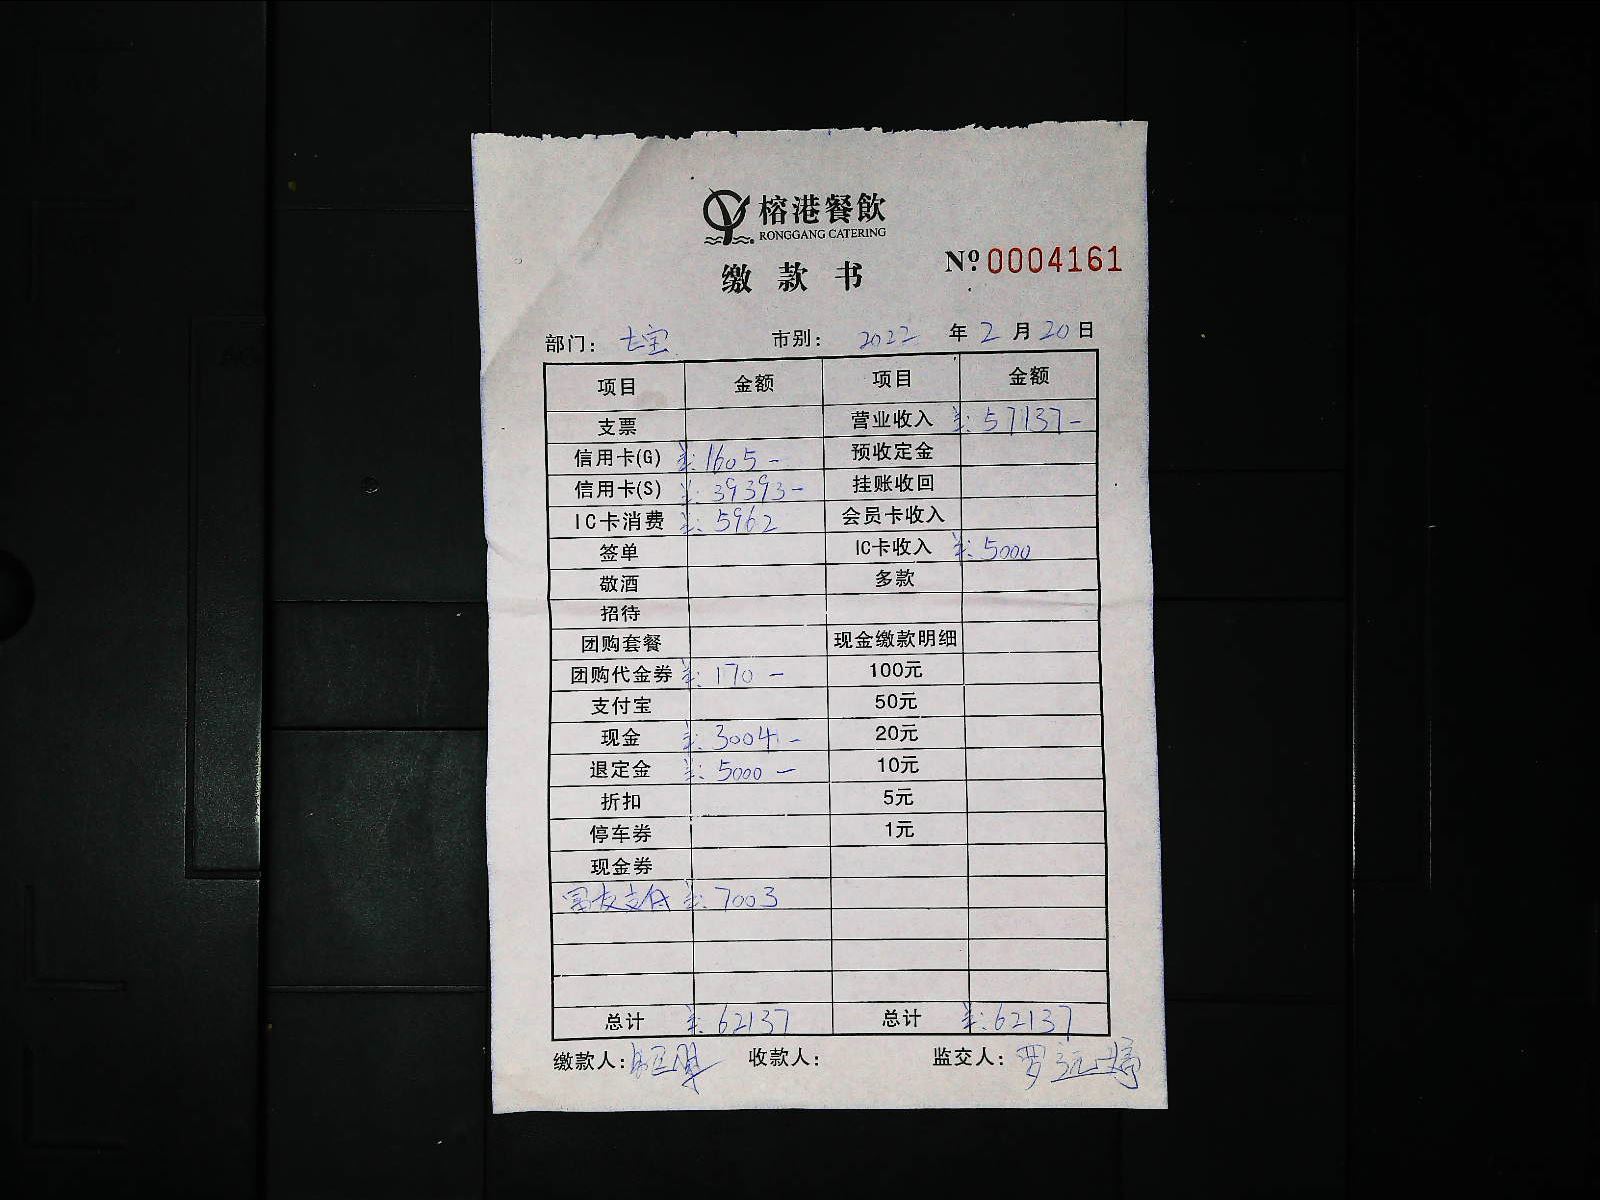 榕港餐飲
RONGGANG CATERING
缴款书 Nº 0004161
部门: 七宝 市别: 2022 年 2 月 20 日
项目 金额 项目 金额
支票 营业收入 ¥: 57137-
信用卡(G) ¥: 1605- 预收定金
信用卡(S) ¥: 39393- 挂账收回
IC卡消费 ¥: 5962 会员卡收入
签单 IC卡收入 ¥: 5000
敬酒 多款
招待
团购套餐 现金缴款明细
团购代金券 ¥: 170- 100元
支付宝 50元
现金 ¥: 3004- 20元
退定金 ¥: 5000- 10元
折扣 5元
停车券 1元
现金券
支付 ¥: 7003
总计 ¥: 62137 总计 ¥: 62137
缴款人: 收款人: 监交人: 罗